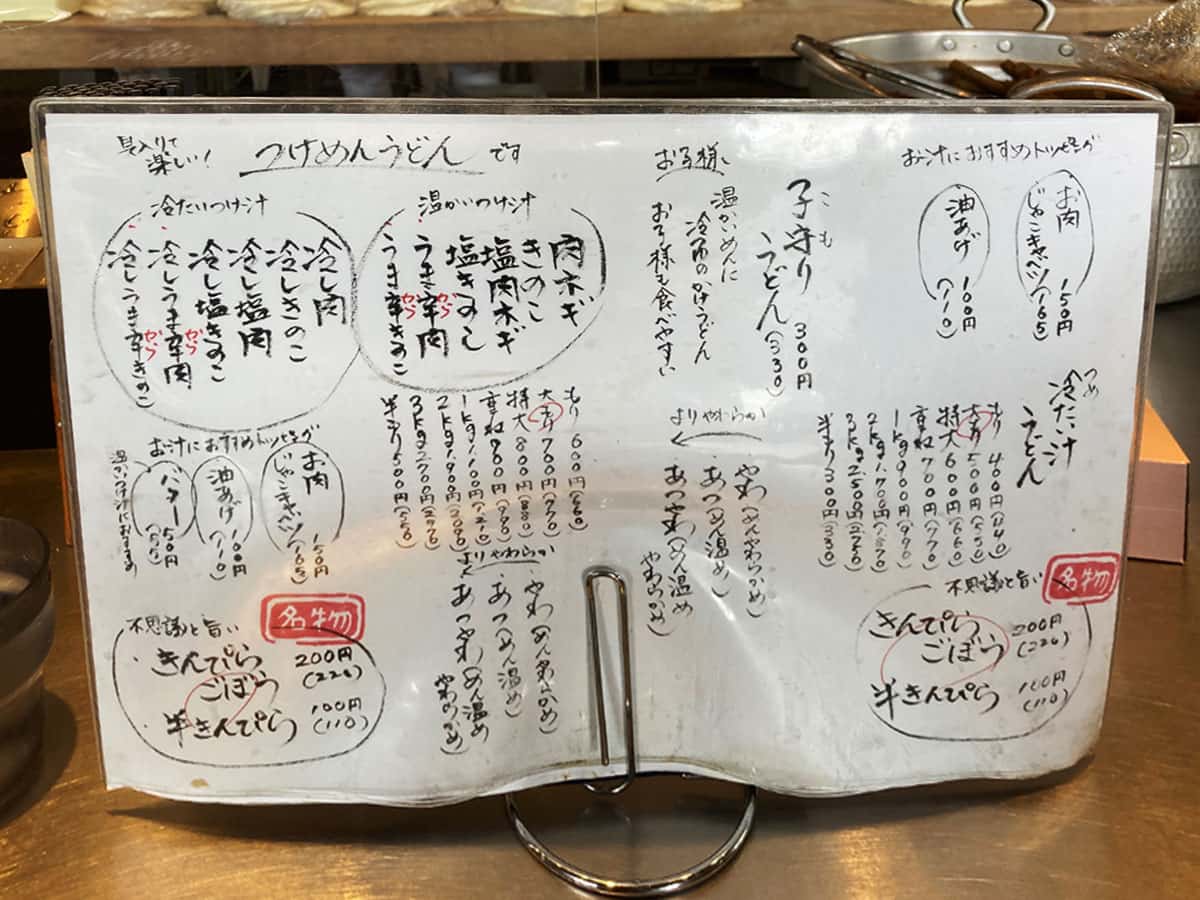 具入りで
楽しい!
つけめんうどん です
温かいつけ汁
肉ネギ
きのこ
塩肉ネギ
塩きのこ
うま辛肉
から
うま辛きのこ
から
冷たいつけ汁
冷し肉
冷しきのこ
冷し塩肉
冷し塩きのこ
冷しうま辛肉
から
冷しうま辛きのこ
から
もり600円(660)
大もり700円(770)
特大800円(880)
重ね900円(990)
1kg1.100円(1.210)
2kg1.900円(2090)
3kg2700円(2970)
半もり500円(550)
お汁におすすめトッピング
お肉
じゃこキャベツ
150円
(165)
油あげ
100円
(110)
バター
50円
(55)
温かいつけ汁におすすめ
よりやわらかく
やわ(めんやわらかめ)
あつ(めん温め)
あつやわ(めん温め
やわらかめ)
不思議と旨い
名物
きんぴら
ごぼう
200円
(220)
半きんぴら
100円
(110)
お子様に
子守り
こも
うどん
300円
(330)
温かいめんに
冷布のかけうどん
お子様も食べやすい
よりやわらか
やわ(めんやわらかめ)
あつ(めん温め)
あつやわ(めん温め
やわらかめ)
お汁におすすめトッピング
お肉
じゃこキャベツ
150円
(165)
油あげ
100円
(110)
冷たい汁
つめ
うどん
もり400円(440)
大もり500円(550)
特大600円(660)
重ね700円(770)
1kg900円(990)
2kg1.700円(1.870)
3kg2.500円(2750)
半もり300円(330)
不思議と旨い
名物
きんぴら
ごぼう
200円
(220)
半きんぴら
100円
(110)